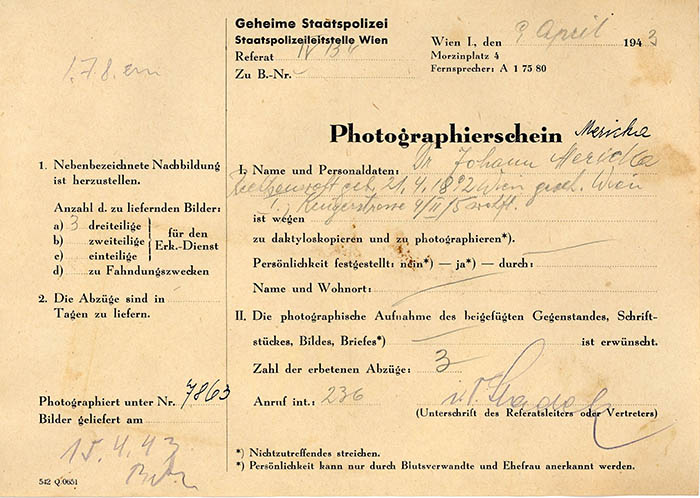 Geheime Staatspolizei
Staatspolizeileitstelle Wien
Referat IV B 4
Zu B.-Nr.
Wien I., den 9. April 1943
Morzinplatz 4
Fernsprecher: A 1 75 80
1.78 cm
Photographierschein Mericka
1. Nebenbezeichnete Nachbildung
ist herzustellen.
Anzahl d. zu liefernden Bilder:
a) 3 dreiteilige
b) zweiteilige
c) einteilige
für den
Erk.-Dienst
d) zu Fahndungszwecken
2. Die Abzüge sind in
Tagen zu liefern.
Photographiert unter Nr. 7863
Bilder geliefert am
15.4.43
542 Q/0651
I. Name und Personaldaten: Dr Johann Mericka
geb. 21.4.1892 Wien gesch. Wien
I., 4/II/5
ist wegen
zu daktyloskopieren und zu photographieren*).
Persönlichkeit festgestellt: nein*) — ja*) — durch:
Name und Wohnort:
II. Die photographische Aufnahme des beigefügten Gegenstandes, Schrift-
stückes, Bildes, Briefes*) ist erwünscht.
Zahl der erbetenen Abzüge: 3
Anruf int.: 236
(Unterschrift des Referatsleiters oder Vertreters)
*) Nichtzutreffendes streichen.
*) Persönlichkeit kann nur durch Blutsverwandte und Ehefrau anerkannt werden.